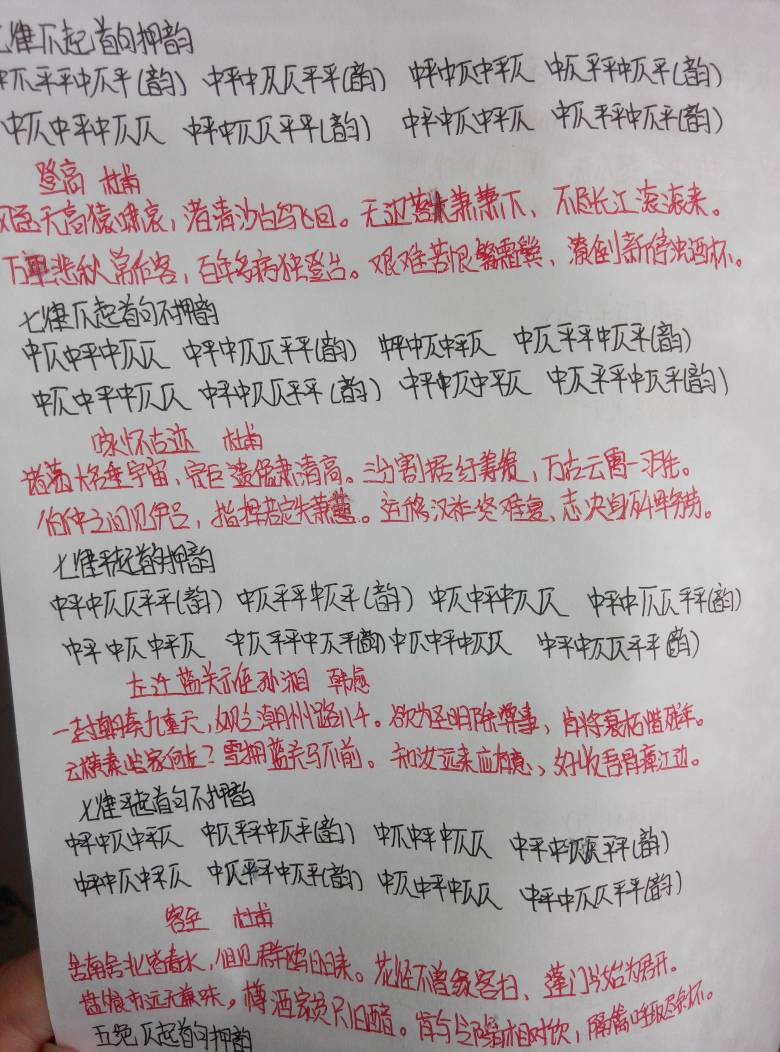 七律仄起首句押韵
中仄平平中仄平(韵) 中平中仄仄平平(韵) 中平中仄中平仄 中仄平平中仄平(韵)
中仄中平中仄仄 中平中仄仄平平(韵) 中平中仄中平仄 中仄平平中仄平(韵)
登高 杜甫
风急天高猿啸哀,渚清沙白鸟飞回。无边落木萧萧下、不尽长江滚滚来。
万里悲秋常作客,百年多病独登台。艰难苦恨繁霜鬓、潦倒新停浊酒杯。
七律仄起首句不押韵
中仄中平中仄仄 中平中仄仄平平(韵) 中平中仄中平仄 中仄平平中仄平(韵)
中仄中平中仄仄 中平中仄仄平平(韵) 中平中仄中平仄 中仄平平中仄平(韵)
咏怀古迹 杜甫
诸葛大名垂宇宙,宗臣遗像肃清高。三分割据纡筹策,万古云霄一羽毛。
伯仲之间见伊吕,指挥若定失萧曹。运移汉祚终难复、志决身歼军务劳。
七律平起首句押韵
中平中仄仄平平(韵) 中仄平平中仄平(韵) 中仄中平中仄仄 中平中仄仄平平(韵)
中平中仄中平仄 中仄平平中仄平(韵) 中仄中平中仄仄 中平中仄仄平平(韵)
左迁蓝关示侄孙湘 韩愈
一封朝奏九重天,夕贬潮州路八千。欲为圣明除弊事,肯将衰朽惜残年。
云横秦岭家何在?雪拥蓝关马不前。知汝远来应有意、好收吾骨瘴江边。
七律平起首句不押韵
中平中仄中平仄 中仄平平中仄平(韵) 中仄中平中仄仄 中平中仄仄平平(韵)
中平中仄中平仄 中仄平平中仄平(韵) 中仄中平中仄仄 中平中仄仄平平(韵)
客至 杜甫
舍南舍北皆春水,但见群鸥日日来。花径不曾缘客扫、蓬门今始为君开。
盘飧市远无兼味,樽酒家贫只旧醅。肯与邻翁相对饮,隔篱呼取尽余杯。
五绝仄起首句押韵